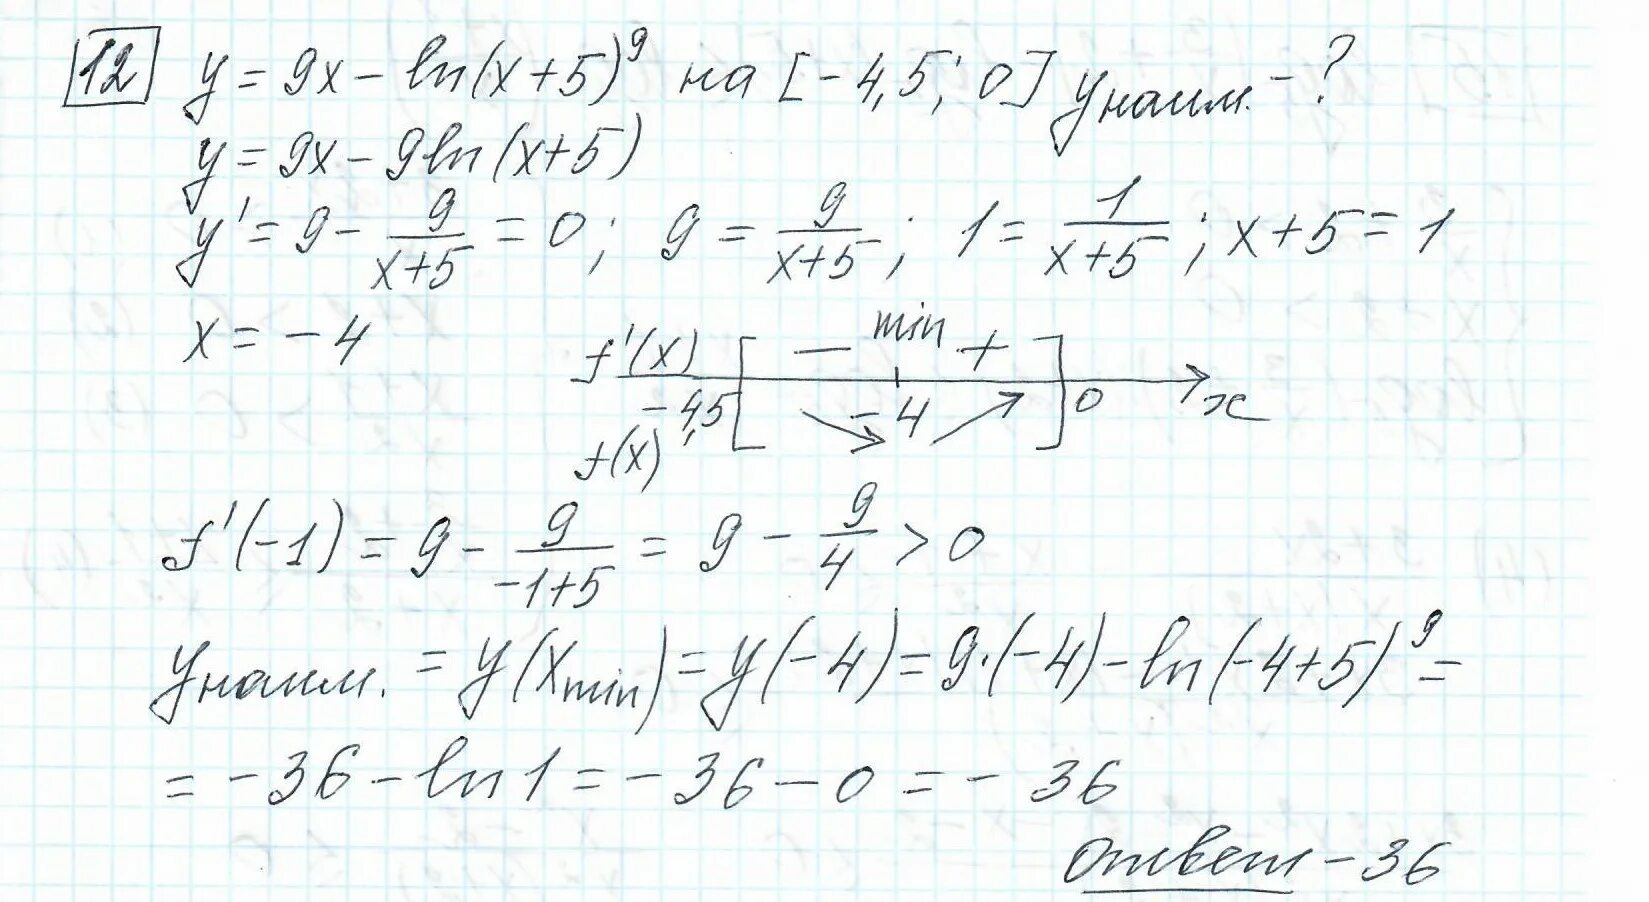 12 y = 9x - ln(x+5)^9 на [-4,5; 0] y наим. - ?
y = 9x - 9ln(x+5)
y' = 9 - 9/(x+5) = 0; 9 = 9/(x+5); 1 = 1/(x+5); x+5 = 1
x = -4
f'(x) [ — min + ]
-4,5 -4 0 x
f(x)
f'(-1) = 9 - 9/(-1+5) = 9 - 9/4 > 0
y наим. = y(x min) = y(-4) = 9·(-4) - ln(-4+5)^9 =
= -36 - ln1 = -36 - 0 = -36
ответ -36